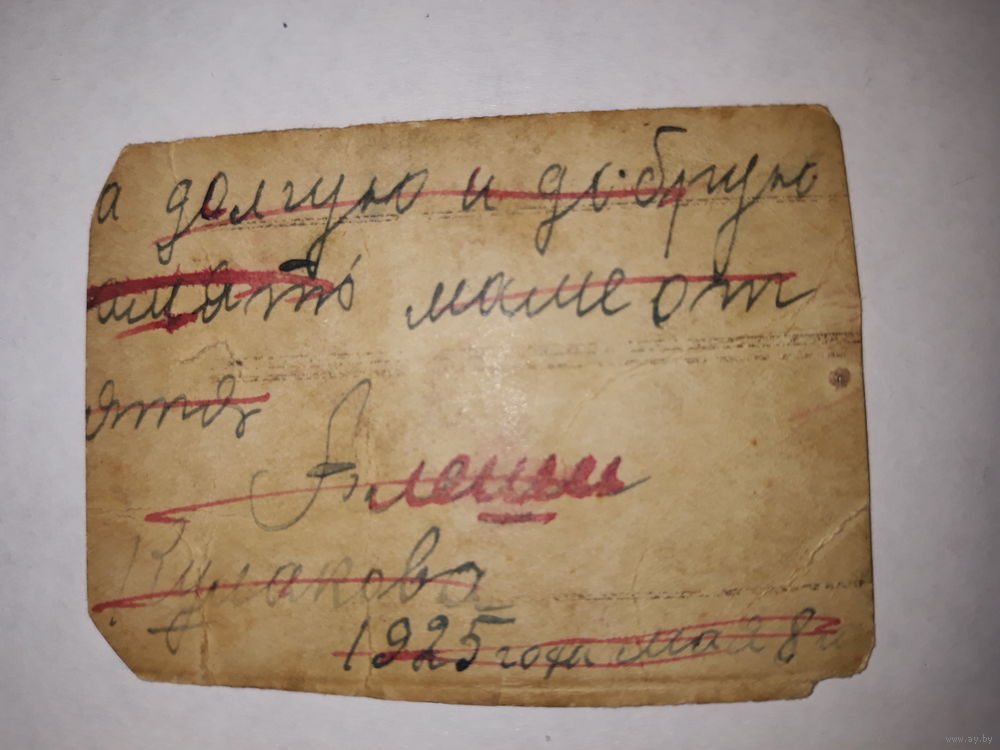 а долгую и добрую
амять маме от
ятя
Алеши
Кулакова
1925 года мая 8
www.ay.by